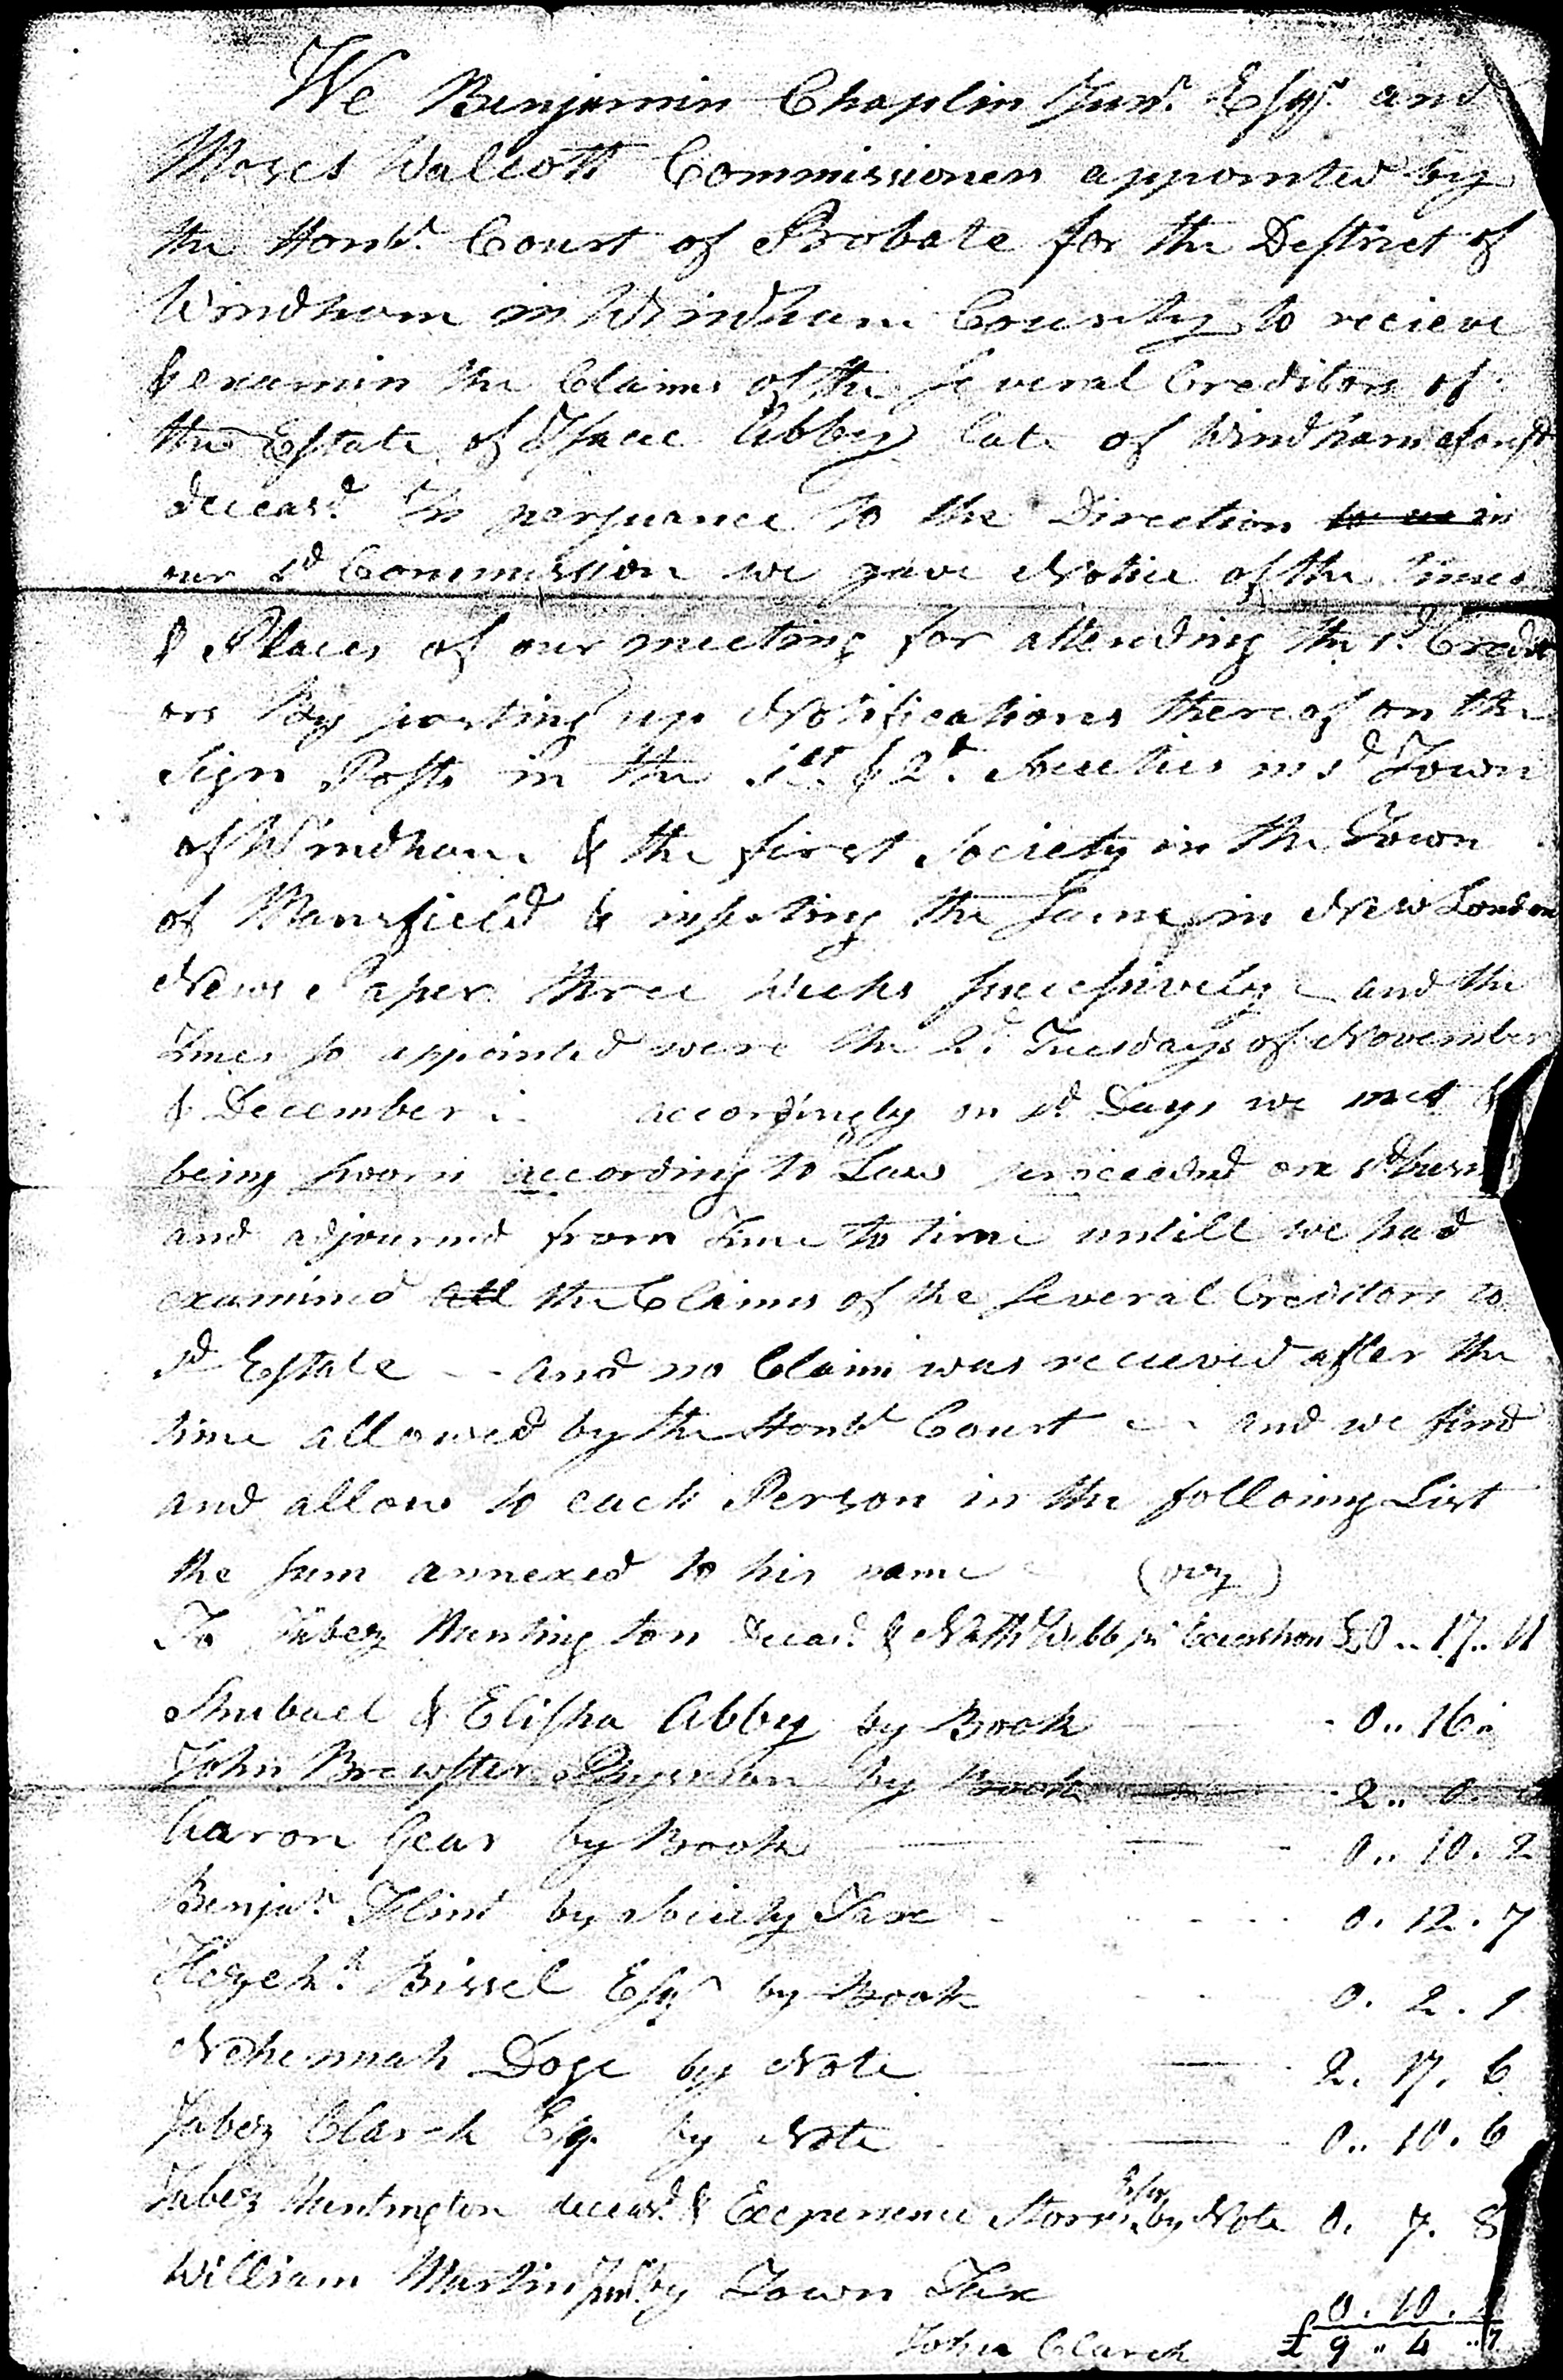 We Benjamin Chaplin Junr. Esqr. and
Moses Walcott Commissioners appointed by
the Honbl. Court of Probate for the District of
Windham in Windham County to recieve
& examin the Claims of the Several Creditors of
the Estate of Isaac Abbey late of Windham aforesd.
deceasd. In persuance to the Direction to us in
our sd Commission we gave Notice of the times
& Places of our meeting for attending the sd. Credit
ors By posting up Notifications thereof on the
Sign Posts in the 1st. & 2d. Societies in sd Town
of Windham & the first Society in the Town
of Mansfield & inserting the Same in New London
News Paper three weeks successively and the
Times so appointed were the 2d. Tuesdays of November
& December accordingly on sd. Days we met &
being sworn according to Law proceeded on sd
and adjournd from Time to time untill we had
examined all the Claims of the Several Creditors to
sd Estate -- and no Claim was recieved after the
time allowed by the Honbl Court -- and we find
and allow to each Person in the folloing List
the sum annexed to his name (viz)
To Jabez Huntington deceasd. & Nathl Webb pr Execution £0 .. 17 .. 11
Shubael & Elisha Abbey by Book 0 .. 16
John Brewster Physician by Book 2 .. 0
Aaron Gear by Book 0 .. 10 . 2
Benjan. Flint by Society Tax 0 . 12 . 7
Hezeh. Bissel Esqr by Book 0 . 2 . 1
Nehemiah Doge by Note 2 . 17 . 6
Jabez Clark Esq. by Note 0 .. 10 . 6
Jabez Huntington deceasd. & Experience Storrs Esqr by Note 0 . 7 . 8
William Martin Junr. by Town Tax 0 . 10 .
John Clarck £ 9 .. 4 .. 7